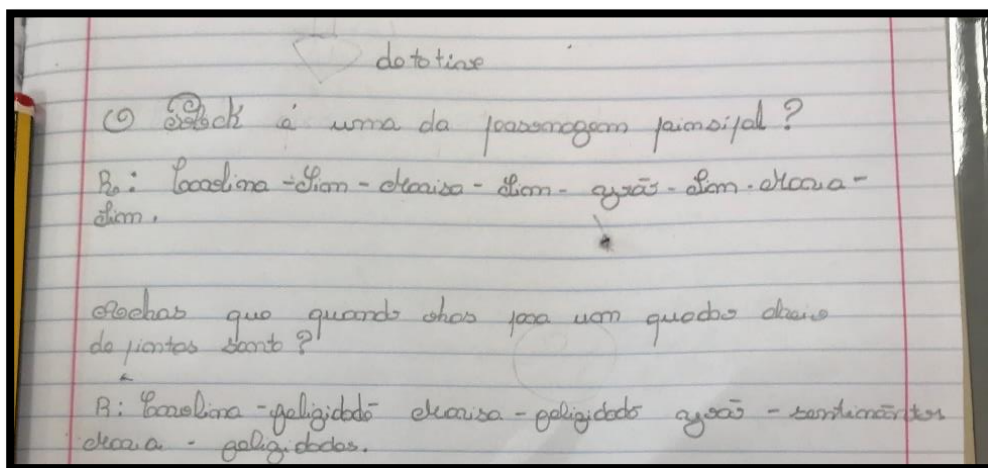 dototine
O Block é uma da passonagem paimsipal?
R: Carolina - Sim - Marisa - Sim - - Sim. Maria -
Sim.
Achas que quando olhas para um quadro cheio
de pintas sante?
R: Carolina - feligidade Marisa - feligidade - sentimentos
Maria - feligidades.